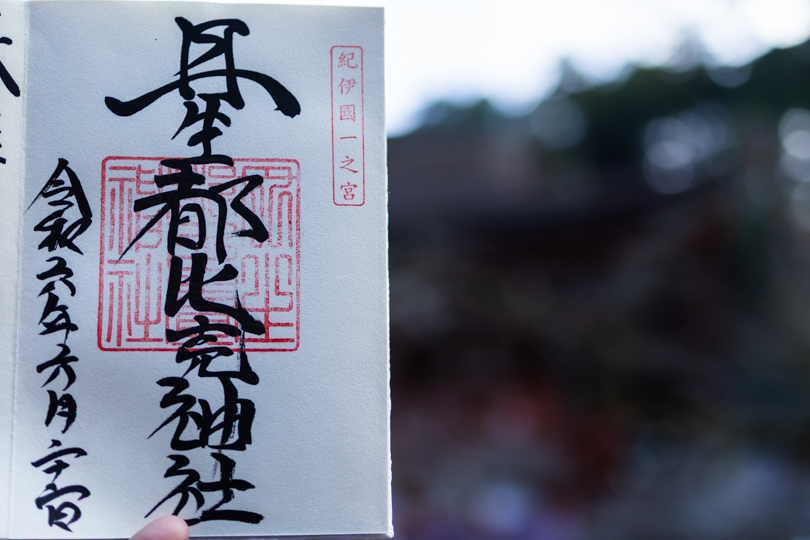 紀伊國一之宮
丹生都比売神社
令和六年六月二十日